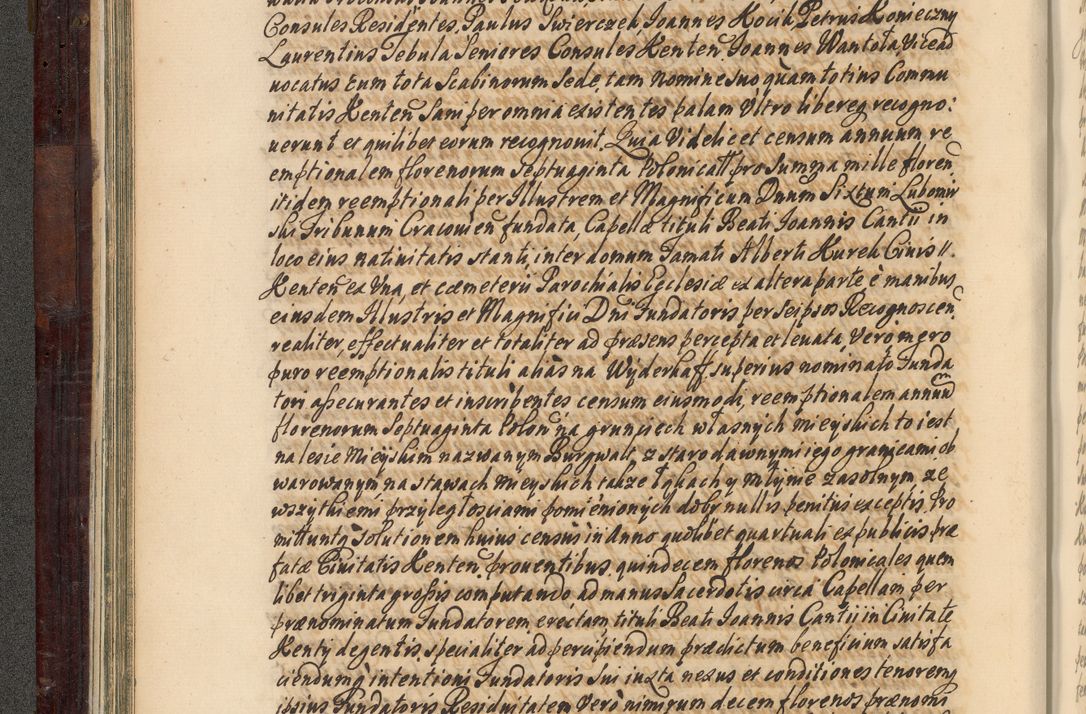 Consules Residentes, Paulus Swierczek, Joannes Kocik, Petrus Konieczny
Laurentius Tebula Seniores Consules Kenten̄. Joannes Wantola, Vicead
uocatus cum tota Scabinorum Sede, tam nomine suo quam totius Commu
nitatis Kenten̄ Sani per omnia existentes palam Vltro libereq recogno:
uerunt et quilibet eorum recognouit, Quia Videlicet censum annuum re
emptionalem florenorum Septuaginta Polonicall pro Summa mille floren̄
itidem reemptionali per Illustrem et Magnificum Dnum Sixtum Lubomir
ski Tribunum Cracouien̄ fundata, Capellæ tituli Beati Joannis Cantii in
loco eius natiuitatis stanti, inter domum Famati Alberti Kurek Ciuis //.
Kenten̄ ex Vna, et cæmeterii Parochialis Ecclesiæ ex altera parte è manibus
eiusdem Illustris et Magnifici Dn̄i Fundatoris per Seipsos Recognoscen̄.
realiter, effectualiter et totaliter ad præsens percepta et leuata, Vero, mero
puro reemptionalis tituli aliàs na Wyderkaff superius nominato Funda
tori assecurantes et inscribentes censum eiusmodi, reemptionalem annuū
florenorum Septuaginta Polon̄ na grunciech własnych mieyskich to iest
na lesie Mieyskim nazwanym Burgwalt, z starodawnymi iego granicami ob
warowanym na stawach Mieyskich także Łąkach y Młynie Zasolnym, ze
wszytkiemi przyległosciami pomienionych dobr nullis penitus exceptis. Pro
mittuntq Solutionem huius censûs in Anno quolibet quartuali ex publicis præ
fatæ Ciuitatis Kenten̄. prouentibus quindecem florenos Polonicales quem
libet triginta grossis computando ad manus Sacerdotis circa Capellam per
prænominatum Fundatorem erectam tituli Beati Joannis Cantii in Ciuitate
Kenty degentis, specialiter ad percipiendum prædictum beneficium satisfa
ciendumq intentioni Fundatoris Sui iuxta nexus et conditiones tenoremq
ipsius Fundatoris Residuitatem Verò nimirum decem florenos prænomi